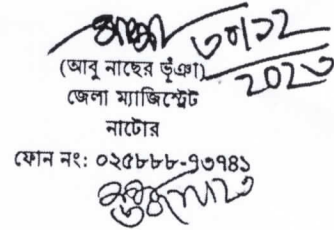 ৩০/১২
2023
(আবু নাছের ভূঁঞা)
জেলা ম্যাজিস্ট্রেট
নাটোর
ফোন নং: ০২৫৮৮৮-৭৩৭৪১